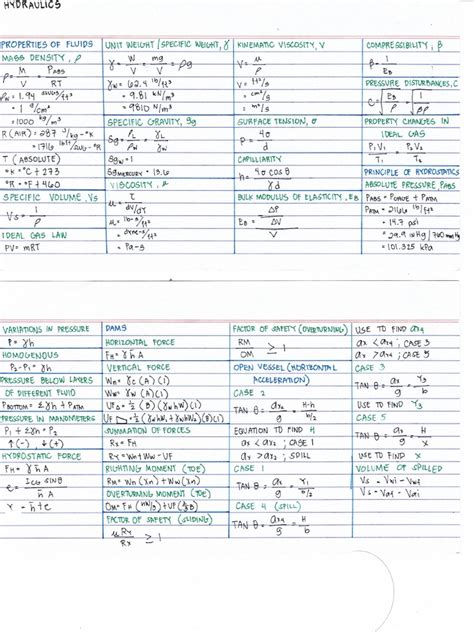 HYDRAULICS
PROPERTIES OF FLUIDS
MASS DENSITY, ρ
ρ = M/V = PABS/RT
ρw = 1.94 slugs/ft³
= 1 g/cm³
= 1000 kg/m³
R (AIR) = 287 J/kg-°K
= 1716 lb-ft/slug-°R
T (ABSOLUTE)
°K = °C + 273
°R = °F + 460
SPECIFIC VOLUME, Vs
Vs = 1/ρ
IDEAL GAS LAW
PV = mRT
UNIT WEIGHT / SPECIFIC WEIGHT, γ
γ = W/V = mg/V = ρg
γw = 62.4 lb/ft³
= 9.81 kN/m³
= 9810 N/m³
SPECIFIC GRAVITY, Sg
Sg = ρL/ρw = γL/γw
Sgw = 1
SgMERCURY = 13.6
VISCOSITY, μ
μ = τ/(dv/dy)
μ = lb-s/ft²
= dyne-s/ft²
= Pa-s
KINEMATIC VISCOSITY, V
V = μ/ρ
V = ft²/s
= cm²/s
= m²/s
SURFACE TENSION, σ
P = 4σ/d
CAPILLIARITY
h = 4σ cos θ/γd
BULK MODULUS OF ELASTICITY, EB
EB = ΔP/(ΔV/V)
COMPRESSIBILITY, β
β = 1/EB
PRESSURE DISTURBANCES, C
C = √(EB/ρ) = √(1/βρ)
PROPERTY CHANGES IN
IDEAL GAS
P₁V₁/T₁ = P₂V₂/T₂
PRINCIPLE OF HYDROSTATICS
ABSOLUTE PRESSURE, PABS
PABS = PGAUGE + PATM
PATM = 2116 lb/ft²
= 14.7 psi
= 29.9 inHg / 760 mmHg
= 101.325 kPa
VARIATIONS IN PRESSURE
P = γh
HOMOGENOUS
P₂ - P₁ = γh
PRESSURE BELOW LAYERS
OF DIFFERENT FLUID
PBOTTOM = Σγh + PATM
PRESSURE IN MANOMETERS
P₁ + Σγh = P₂
↑(-), ↓(+)
HYDROSTATIC FORCE
FH = γh̄A
e = ICG sinθ/h̄A
Y = h̄+e
DAMS
HORIZONTAL FORCE
FH = γh̄A
VERTICAL FORCE
Wn = γc (A)(1)
Ww = γw (A)(1)
SUMMATION OF FORCES
Rx = FH
Ry = Wn + Ww - UF
RIGHTING MOMENT (TOE)
RM = Wn (Xn) + Ww (Xw)
OVERTURNING MOMENT (TOE)
FACTOR OF SAFETY (SLIDING)
μRy/Rx ≥ 1
FACTOR OF SAFETY (OVERTURNING)
RM/OM ≥ 1
OPEN VESSEL (HORIZONTAL
ACCELERATION)
CASE 2
TAN θ = ax/g = H-h/(b/2)
EQUATION TO FIND H
ax < ax₂ ; CASE 1
ax > ax₂ ; SPILL
CASE 1
TAN θ = ax/g = Y₁/(b/2)
CASE 4 (SPILL)
TAN θ = ax₄/g = H/b
USE TO FIND ax₄
ax < ax₄ ; CASE 3
ax > ax₄ ; CASE 5
CASE 3
TAN θ = ax/g = Y₃/b
USE TO FIND Y₃
CASE 5
TAN θ = ax/g = H/x
USE TO FIND X
VOLUME OF SPILLED
Vs = Vwi - Vwf